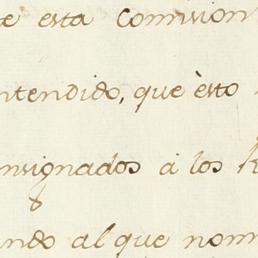 e esta comision
ntendido, que èsto
nsignados à los
ando al que nom